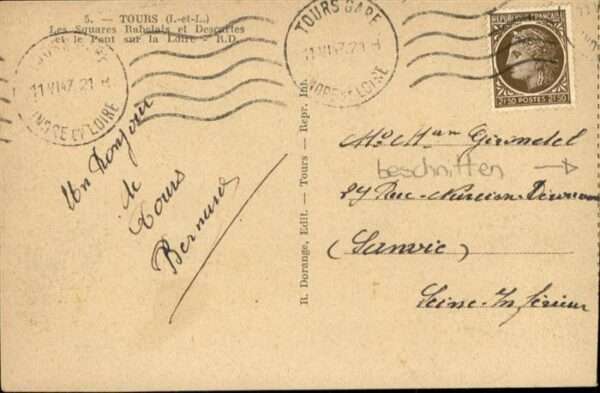 5. — TOURS (I.-et-L.)
Les Squares Rabelais et Descartes
et le Pont sur la Loire - R.D.
11 VI 47. 21 H
INDRE ET LOIRE
TOURS GARE
11 VI 47. 21 H
INDRE ET LOIRE
REPUBLIQUE FRANÇAISE
2f50 POSTES 2f50
Un Bonjour
de
Tours
Bernard
R. Dorange, Edit. - Tours - Repr. Int.
Girondel
beschnitten →
27 Rue
(Sanvic)
Seine-Inférieur